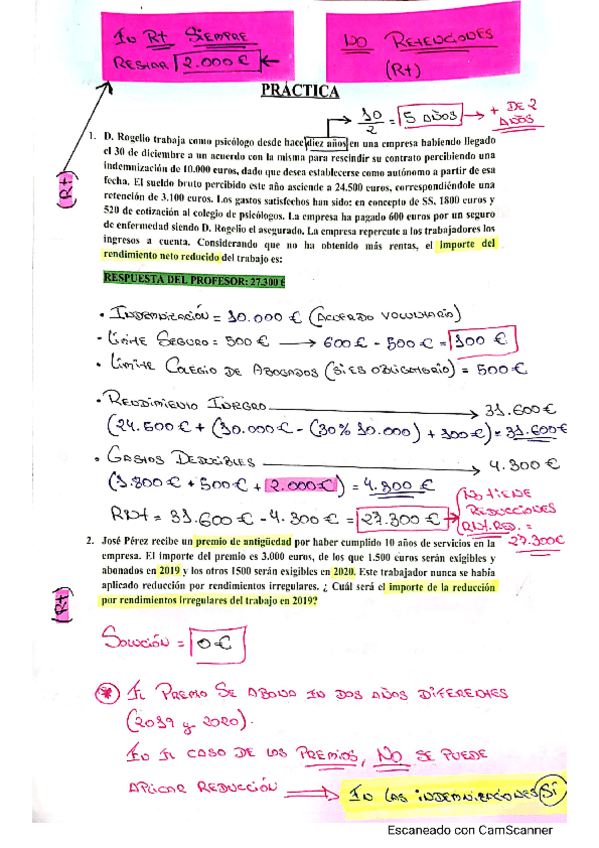 IN Rt SIEMPRE
RESTAR 2.000 €
NO RETENCIONES
(Rt)
PRÁCTICA
10/2 = 5 AÑOS → + DE 2 AÑOS
(Rt)
1. D. Rogelio trabaja como psicólogo desde hace diez años en una empresa habiendo llegado
el 30 de diciembre a un acuerdo con la misma para rescindir su contrato percibiendo una
indemnización de 10.000 euros, dado que desea establecerse como autónomo a partir de esa
fecha. El sueldo bruto percibido este año asciende a 24.500 euros, correspondiéndole una
retención de 3.100 euros. Los gastos satisfechos han sido: en concepto de SS, 1800 euros y
520 de cotización al colegio de psicólogos. La empresa ha pagado 600 euros por un seguro
de enfermedad siendo D. Rogelio el asegurado. La empresa repercute a los trabajadores los
ingresos a cuenta. Considerando que no ha obtenido más rentas, el importe del
rendimiento neto reducido del trabajo es:
RESPUESTA DEL PROFESOR: 27.300 €
• INDEMNIZACIÓN = 10.000 € (ACUERDO VOLUNTARIO)
- LÍMITE SEGURO = 500 € → 600 € - 500 € = 100 €
• LÍMITE COLEGIO DE ABOGADOS (SI ES OBLIGATORIO) = 500 €
• RENDIMIENTO ÍNTEGRO → 31.600 €
(24.500 € + (10.000 € - (30% 10.000) + 100 €) = 31.600 €
• GASTOS DEDUCIBLES → 4.300 €
(1.800 € + 500 € + 2.000 €) = 4.300 €
RNt = 31.600 € - 4.300 € = 27.300 € →
NO TIENE
REDUCCIONES
RNt.RED. =
27.300 €
2. José Pérez recibe un premio de antigüedad por haber cumplido 10 años de servicios en la
empresa. El importe del premio es 3.000 euros, de los que 1.500 euros serán exigibles y
abonados en 2019 y los otros 1500 serán exigibles en 2020. Este trabajador nunca se había
aplicado reducción por rendimientos irregulares. ¿ Cuál será el importe de la reducción
por rendimientos irregulares del trabajo en 2019?
(Rt)
SOLUCIÓN = 0 €
* EL PREMIO SE ABONA EN DOS AÑOS DIFERENTES
(2019 y 2020).
EN EL CASO DE LOS PREMIOS, NO SE PUEDE
APLICAR REDUCCIÓN → EN LAS INDEMNIZACIONES SÍ
Escaneado con CamScanner